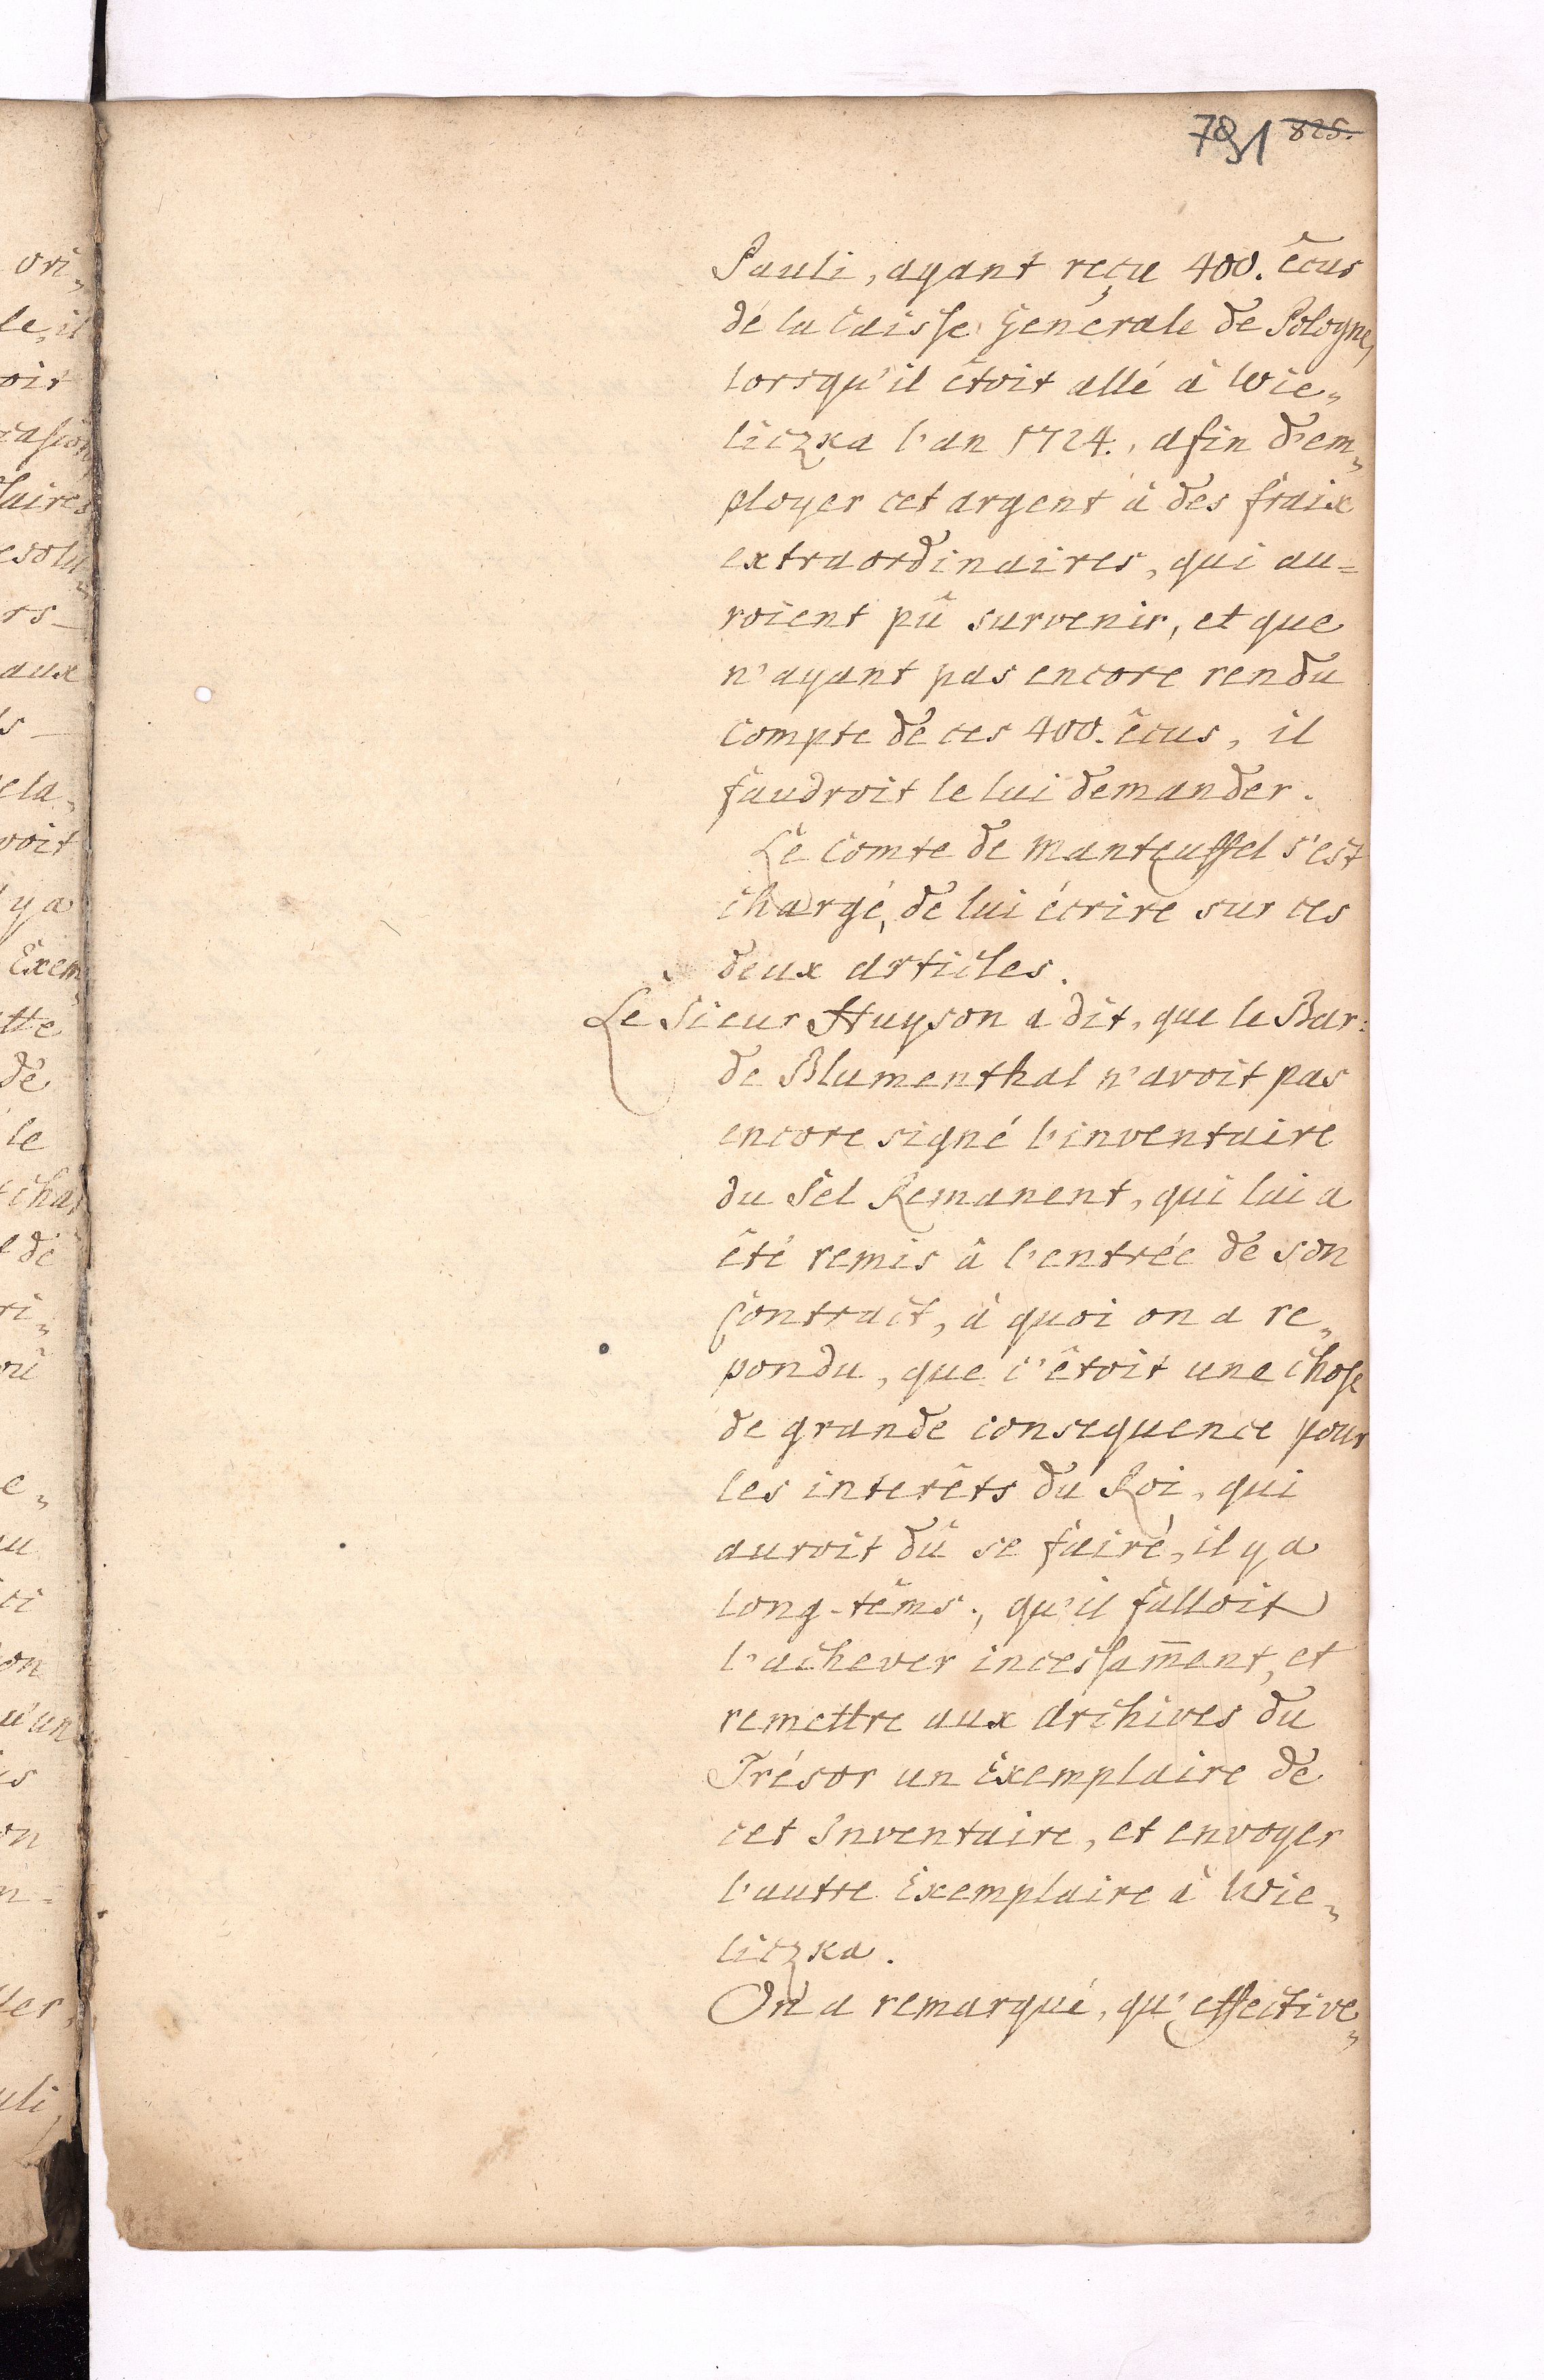 ori„
le, il
oit
casion
laires
esolu„
rs
aux
s
ela„
voit
y a
Exem„
tte
de
le
char
de
ri„
où
e„
u
ci
on
u'un
is
on
n=
ter,
uli,
791 825.
Pauli, ayant reçu 400. êcus
de la Caisse Generale de Pologne,
lorsqu'il êtoit allé à Wie„
liczka l'an 1724., afin d'em„
ployer cet argent à des fraix
extraordinaires, qui au=
roient pû survenir, et que
n'ayant pas encore rendu
compte de ces 400. êcus, il
faudroit le lui demander.
Le Comte de Manteuffel s'est
chargé, de lui écrire sur ces
deux articles.
Le Sieur Huyson a dit, que le Bar:
de Blumenthal n'avoit pas
encore signé l'inventaire
du Sel Remanent, qui lui a
êté remis à l'entrée de son
Contract, à quoi on a re„
pondu, que c'êtoit une chose
de grande consequence pour
les interêts du Roi, qui
auroit dû se faire, il y a
long-têms., qu'il falloit
l'achever incessam̄ent, et
remettre aux Archives du
Trésor un Exemplaire de
cet Inventaire, et envoyer
l'autre Exemplaire à Wie„
liczka.
On a remarqué, qu'effective„